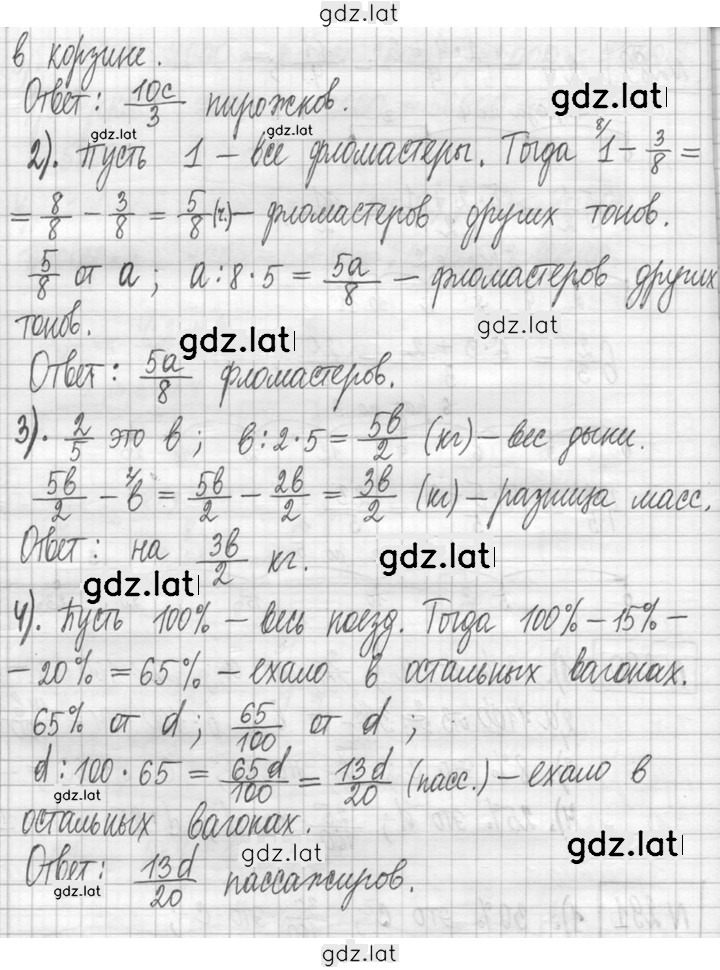 gdz.lat
в корзине.
Ответ: 10с/3 пирожков. gdz.lat
gdz.lat
2). Пусть 1 – все фломастеры. Тогда 8/1 – 3/8 =
= 8/8 – 3/8 = 5/8 (ч.) – фломастеров других тонов.
5/8 от а; а : 8 · 5 = 5а/8 – фломастеров других
тонов. gdz.lat gdz.lat
Ответ: 5а/8 фломастеров.
3). 2/5 это в; в : 2 · 5 = 5в/2 (кг) – вес дыни.
5в/2 – 2/в = 5в/2 – 2в/2 = 3в/2 (кг) – разница масс.
Ответ: на 3в/2 кг. gdz.lat
gdz.lat
4). Пусть 100% – весь поезд. Тогда 100% – 15% –
– 20% = 65% – ехало в остальных вагонах.
65% от d; 65/100 от d;
d : 100 · 65 = 65d/100 = 13d/20 (пасс.) – ехало в
gdz.lat
остальных вагонах.
gdz.lat gdz.lat
Ответ: 13d/20 пассажиров.
gdz.lat
gdz.lat